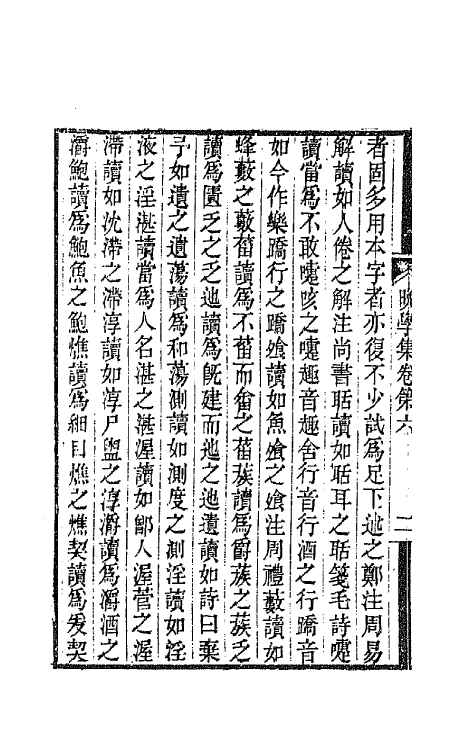 晚學集卷第六
二
者固多用本字者亦復不少試爲足下迆之鄭注周易
解讀如人倦之解注尚書聒讀如聒耳之聒箋毛詩嚏
讀當爲不敢嚏咳之嚏趣音趣舍行音行酒之行蹻音
如今作樂蹻行之蹻飧讀如魚飧之飧注周禮藪讀如
蜂藪之藪菑讀爲不菑而畬之菑蔟讀爲爵蔟之蔟乏
讀爲匱乏之乏迆讀爲旣建而迆之迆遺讀如詩曰棄
予如遺之遺蕩讀爲和蕩測讀如測度之測淫讀如淫
液之淫湛讀當爲人名湛之湛渥讀如鄫人渥菅之渥
滯讀如沈滯之滯淳讀如淳尸盥之淳灂讀爲灂酒之
灂鮑讀爲鮑魚之鮑燋讀爲細目燋之燋契讀爲爰契